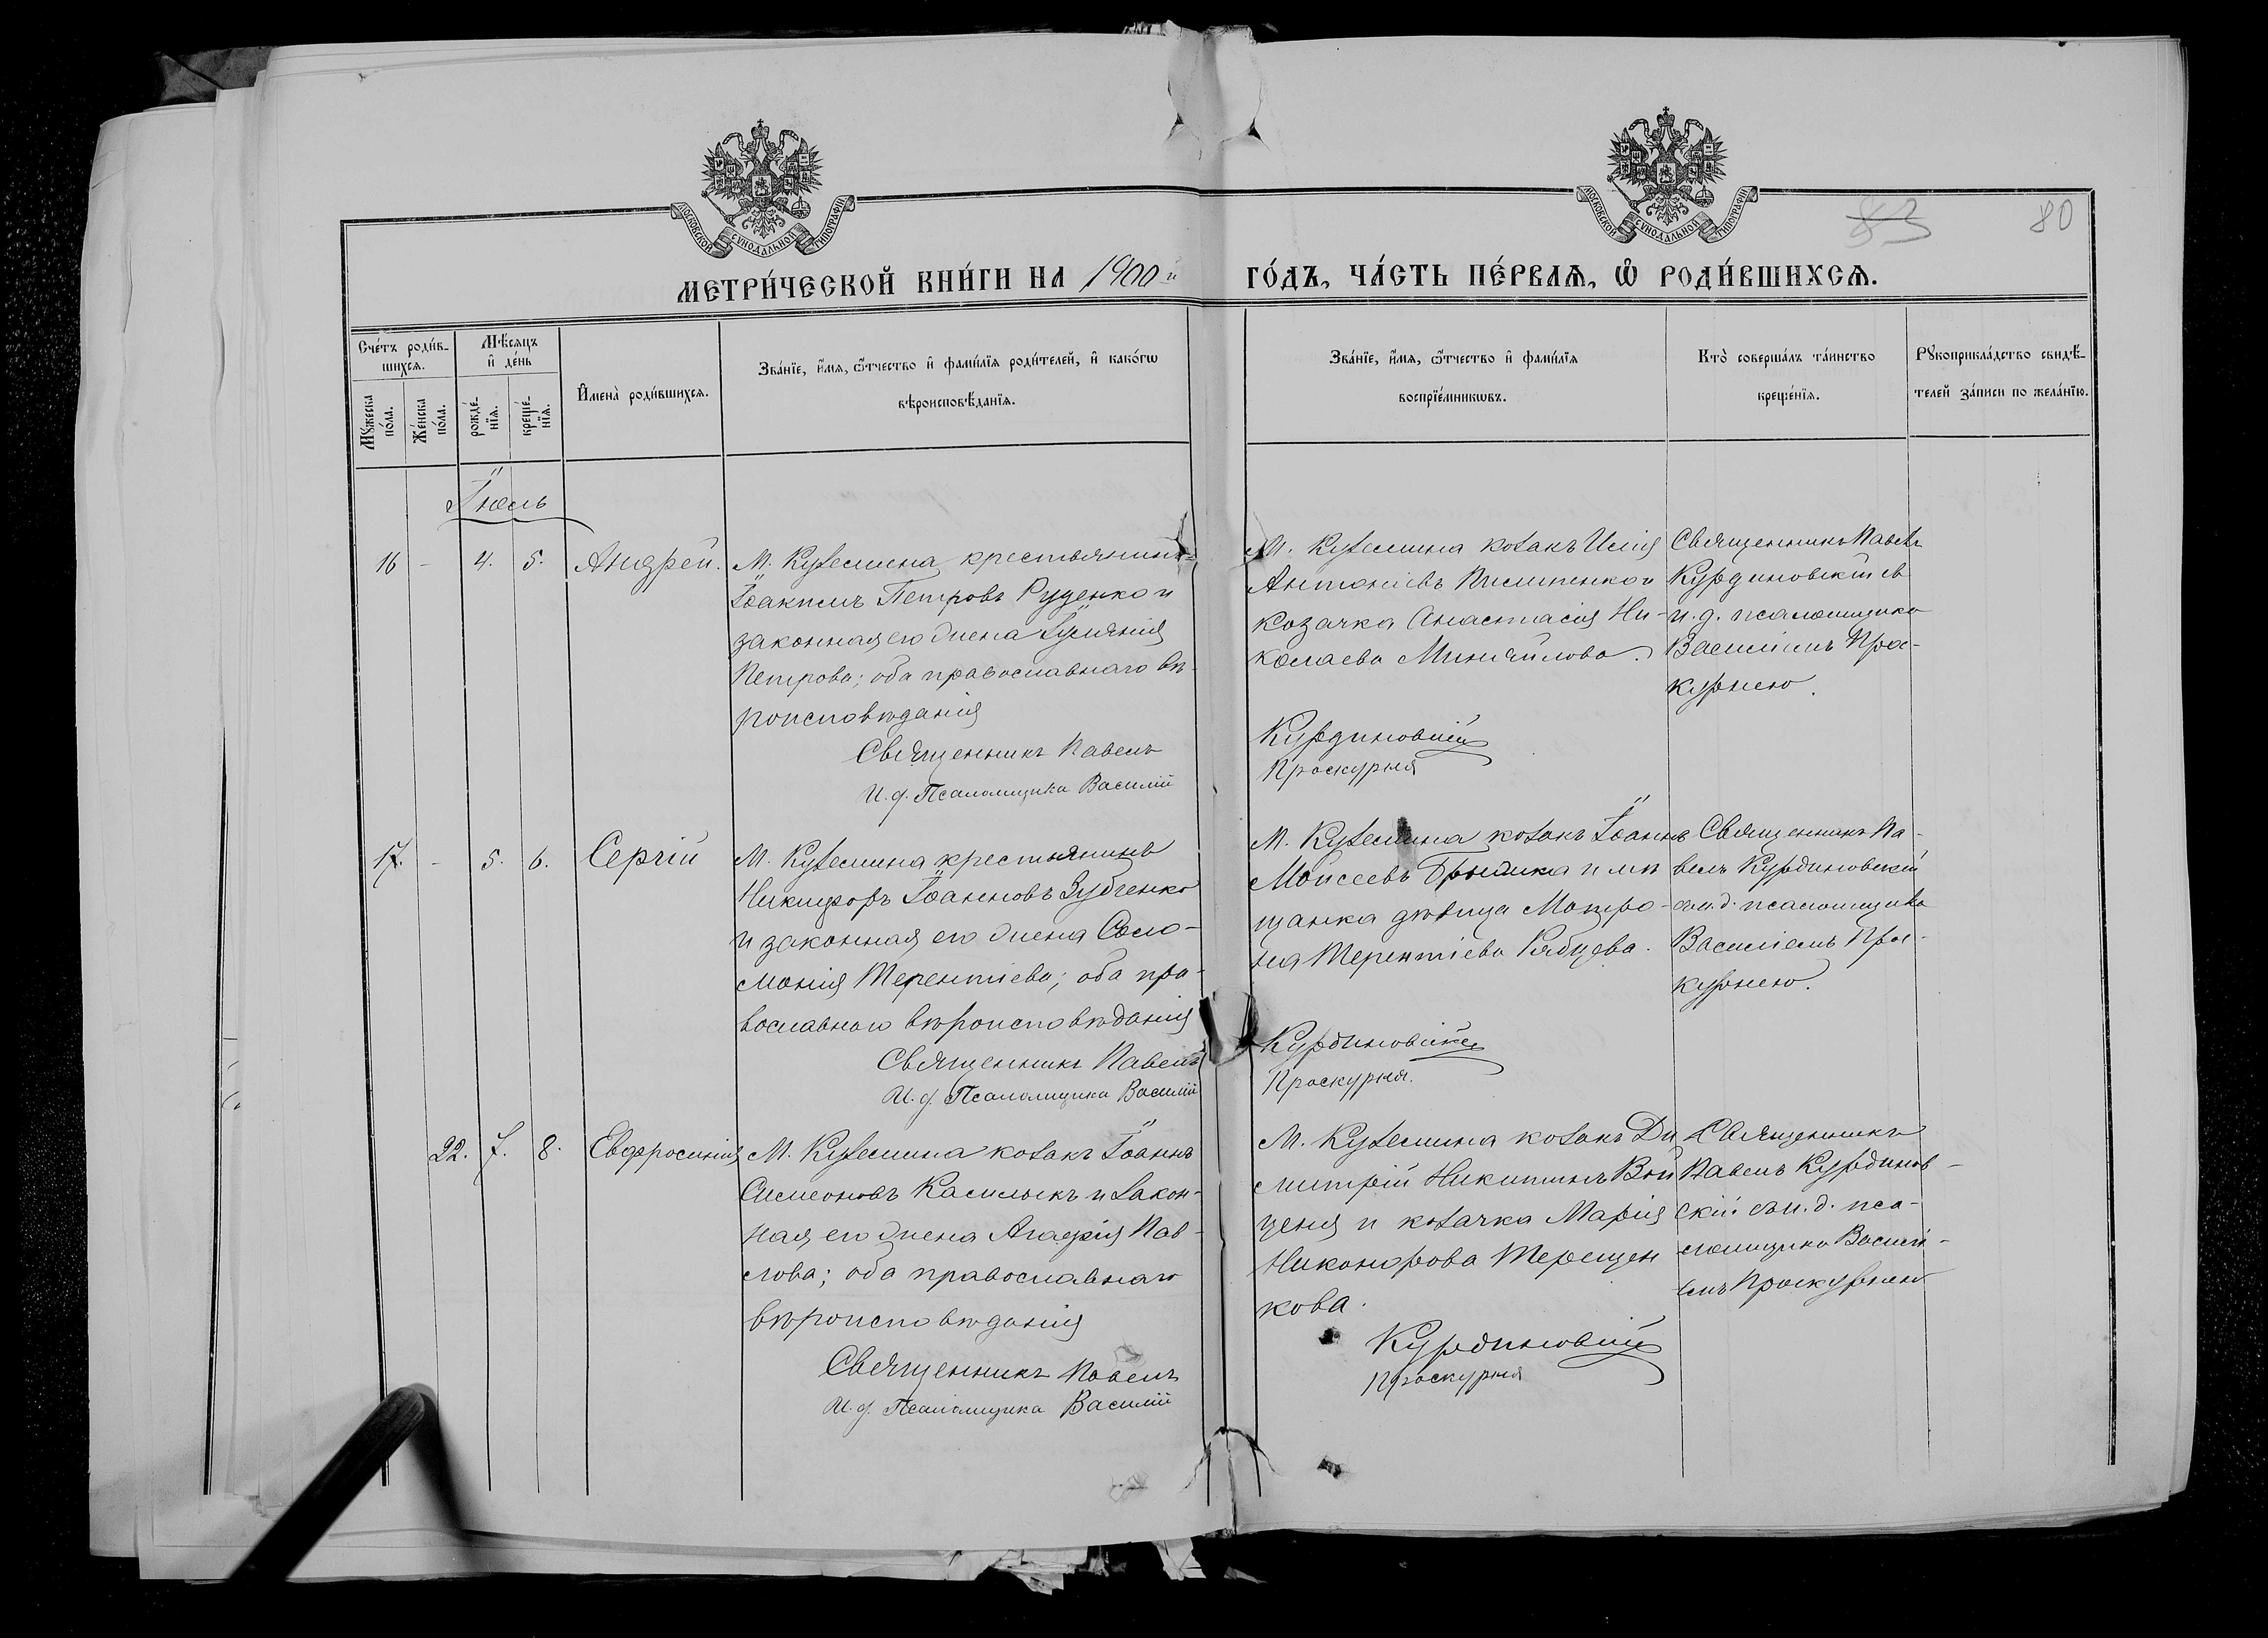 МОСКОВСКОЙ СѴНОДАЛЬНОЙ ТИПОГРАФІИ
МОСКОВСКОЙ СѴНОДАЛЬНОЙ ТИПОГРАФІИ
83
80
МЕТРИ́ЧЕСКОЙ КНИ́ГИ НА 1900 й
ГО́ДЪ, ЧА́СТЬ ПЕ́РВАѦ, Ѡ҆ РОДИ́ВШИХСѦ.
Сче́тъ роди́в-
шихсѧ.
Мꙋ́жеска по́ла.
Же́нска по́ла.
Мѣ́сѧцъ
и҆ де́нь
рожде́-
нїѧ.
креще́-
нїѧ.
И҆мена̀ роди́вшихсѧ.
Зва́нїе, и҆́мѧ, ѻ҆́тчество и҆ фами́лїѧ роди́телей, и҆ како́гѡ
вѣроисповѣ́данїѧ.
Зва́нїе, и҆́мѧ, ѻ҆́тчество и҆ фами́лїѧ
воспрїе́мникѡвъ.
Кто̀ соверша́лъ та́инство
креще́нїѧ.
Рꙋкоприкла́дство свидѣ́-
телей за́писи по жела́нїю.
Іюль
16 - 4. 5. Андрей.
М. Куземина крестьянинъ
Іоакимъ Петровъ Руденко и
законная его жена Іуліянія
Петрова; оба православнаго вѣ-
роисповѣданія
Священникъ Павелъ
И. д. Псаломщика Василій
М. Куземина козакъ Илія
Антоніевъ и
козачка Анастасія Ни-
колаева Миняйлова.
Курдиновскій
Проскурня
Священникъ Павелъ
Курдиновскій съ
и. д. псаломщика
Василіемъ Прос-
курнею.
17. - 5. 6. Сергій
М. Куземина крестьянинъ
Никифоръ Іоанновъ Зубченко
и законная его жена Соло-
монія Терентіева; оба пра-
вославнаго вѣроисповѣданія
Священникъ Павелъ
И. д. Псаломщика Василій
М. Куземина козакъ Іоаннъ
Моисеевъ и мѣ
щанка дѣвица Матро-
на Терентіева Рябцева.
Курдиновскій
Проскурня.
Священникъ Па-
велъ Курдиновскій
съ и. д. псаломщика
Василіемъ Прос-
курнею.
22. 7. 8. Евфросинія
М. Куземина козакъ Іоаннъ
Симеоновъ и закон-
ная его жена Агафія Пав-
лова; оба православнаго
вѣроисповѣданія
Священникъ Павелъ
И. д. Псаломщика Василій
М. Куземина козакъ Ди
митрій Никитинъ Вой
ценя и козачка Марія
Никанорова Терещен
кова.
Курдиновскій
Проскурня
Священникъ
Павелъ Курдинов-
скій съ и. д. пса-
ломщика Василі-
емъ Проскурнею